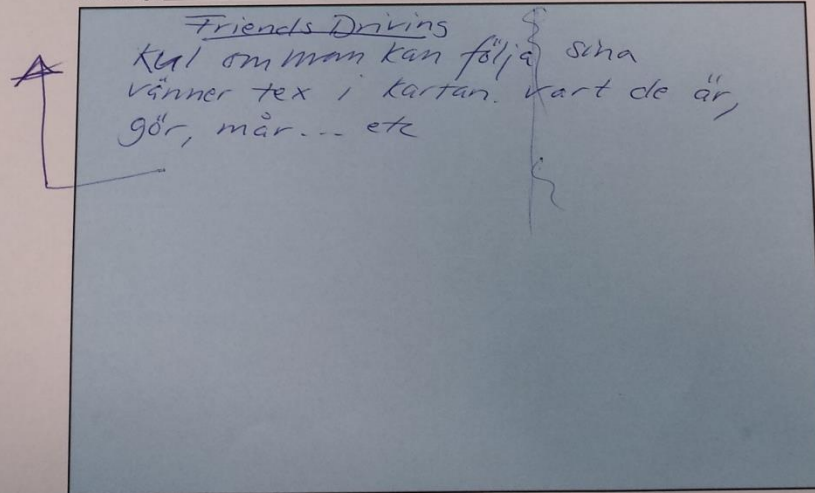 Friends Driving
Kul om man kan följa sina
vänner tex i kartan. vart de är,
gör, mår... etc